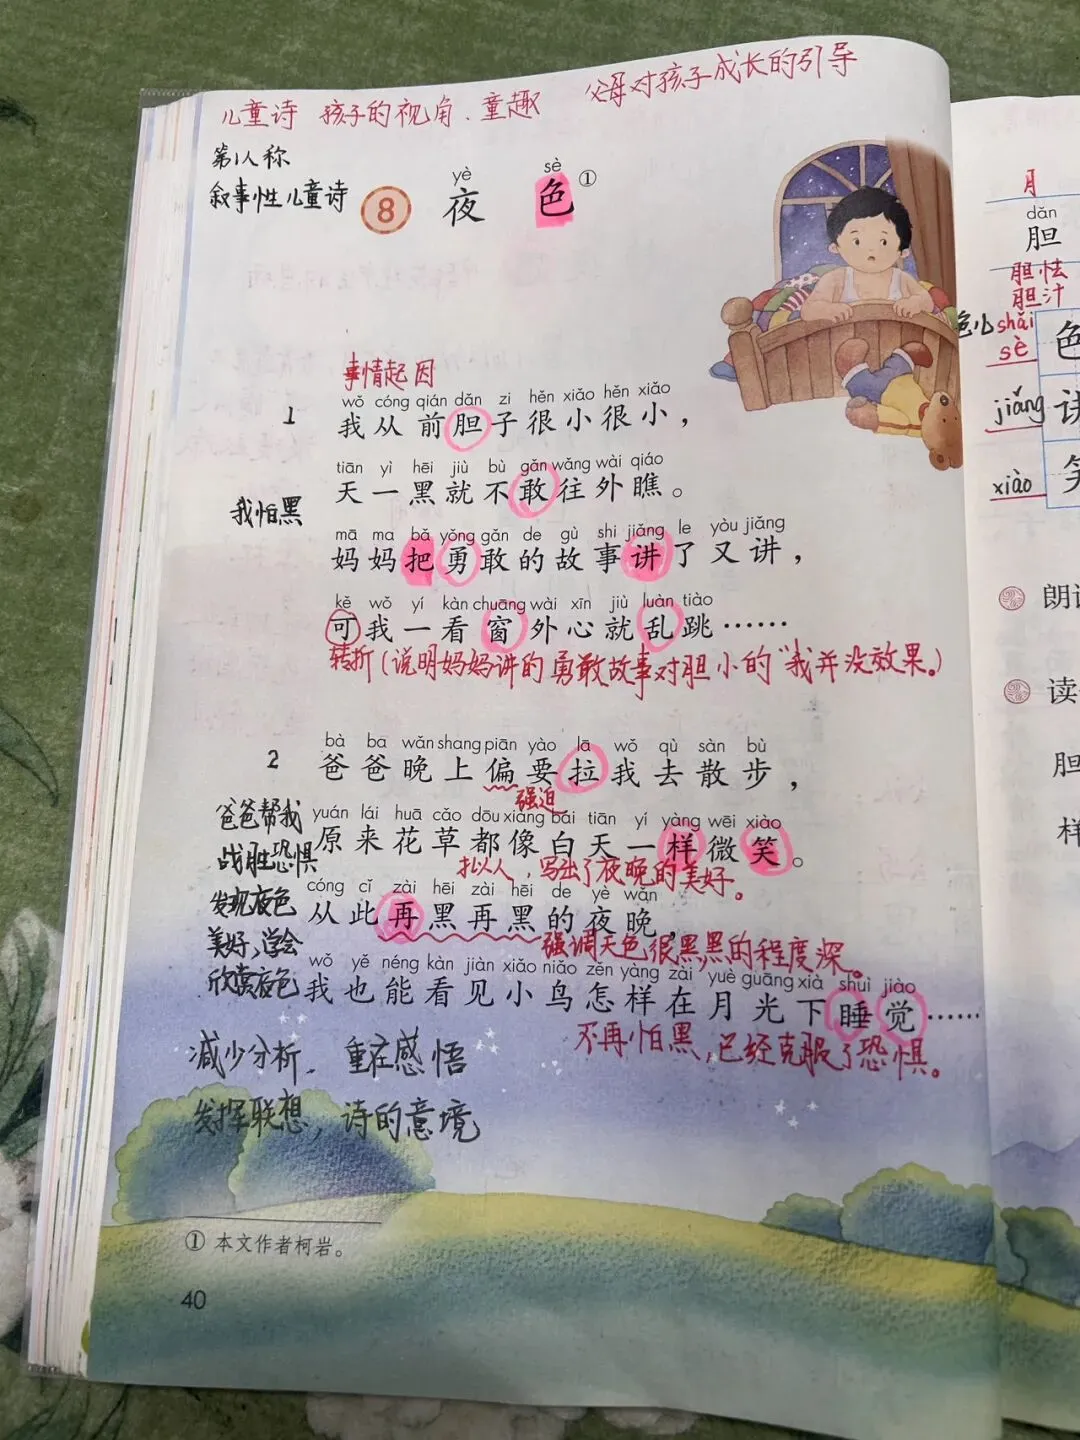 儿童诗 孩子的视角、童趣 父母对孩子成长的引导
第1人称
叙事性儿童诗
yè sè
8 夜 色①
事情起因
wǒ cóng qián dǎn zi hěn xiǎo hěn xiǎo
1 我从前胆子很小很小，
tiān yì hēi jiù bù gǎn wǎng wài qiáo
天一黑就不敢往外瞧。
我怕黑
mā ma bǎ yǒng gǎn de gù shi jiǎng le yòu jiǎng
妈妈把勇敢的故事讲了又讲，
kě wǒ yí kàn chuāng wài xīn jiù luàn tiào
可我一看窗外心就乱跳……
转折(说明妈妈讲的勇敢故事对胆小的“我并没效果。)
bà ba wǎn shang piān yào lā wǒ qù sàn bù
2 爸爸晚上偏要拉我去散步，
强迫
爸爸帮我
战胜恐惧
发现夜色
美好，学会
欣赏夜色
yuán lái huā cǎo dōu xiàng bái tiān yí yàng wēi xiào
原来花草都像白天一样微笑。
拟人，写出了夜晚的美好。
cóng cǐ zài hēi zài hēi de yè wǎn
从此再黑再黑的夜晚
强调天色很黑,黑的程度深。
wǒ yě néng kàn jiàn xiǎo niǎo zěn yàng zài yuè guāng xià shuì jiào
我也能看见小鸟怎样在月光下睡觉……
不再怕黑，已经克服了恐惧。
减少分析、重在感悟
发挥联想，诗的意境
① 本文作者柯岩。
40
月
dǎn
胆
胆怯
胆汁
shǎi
sè
色
jiǎng
xiào
朗读
读
胆
样